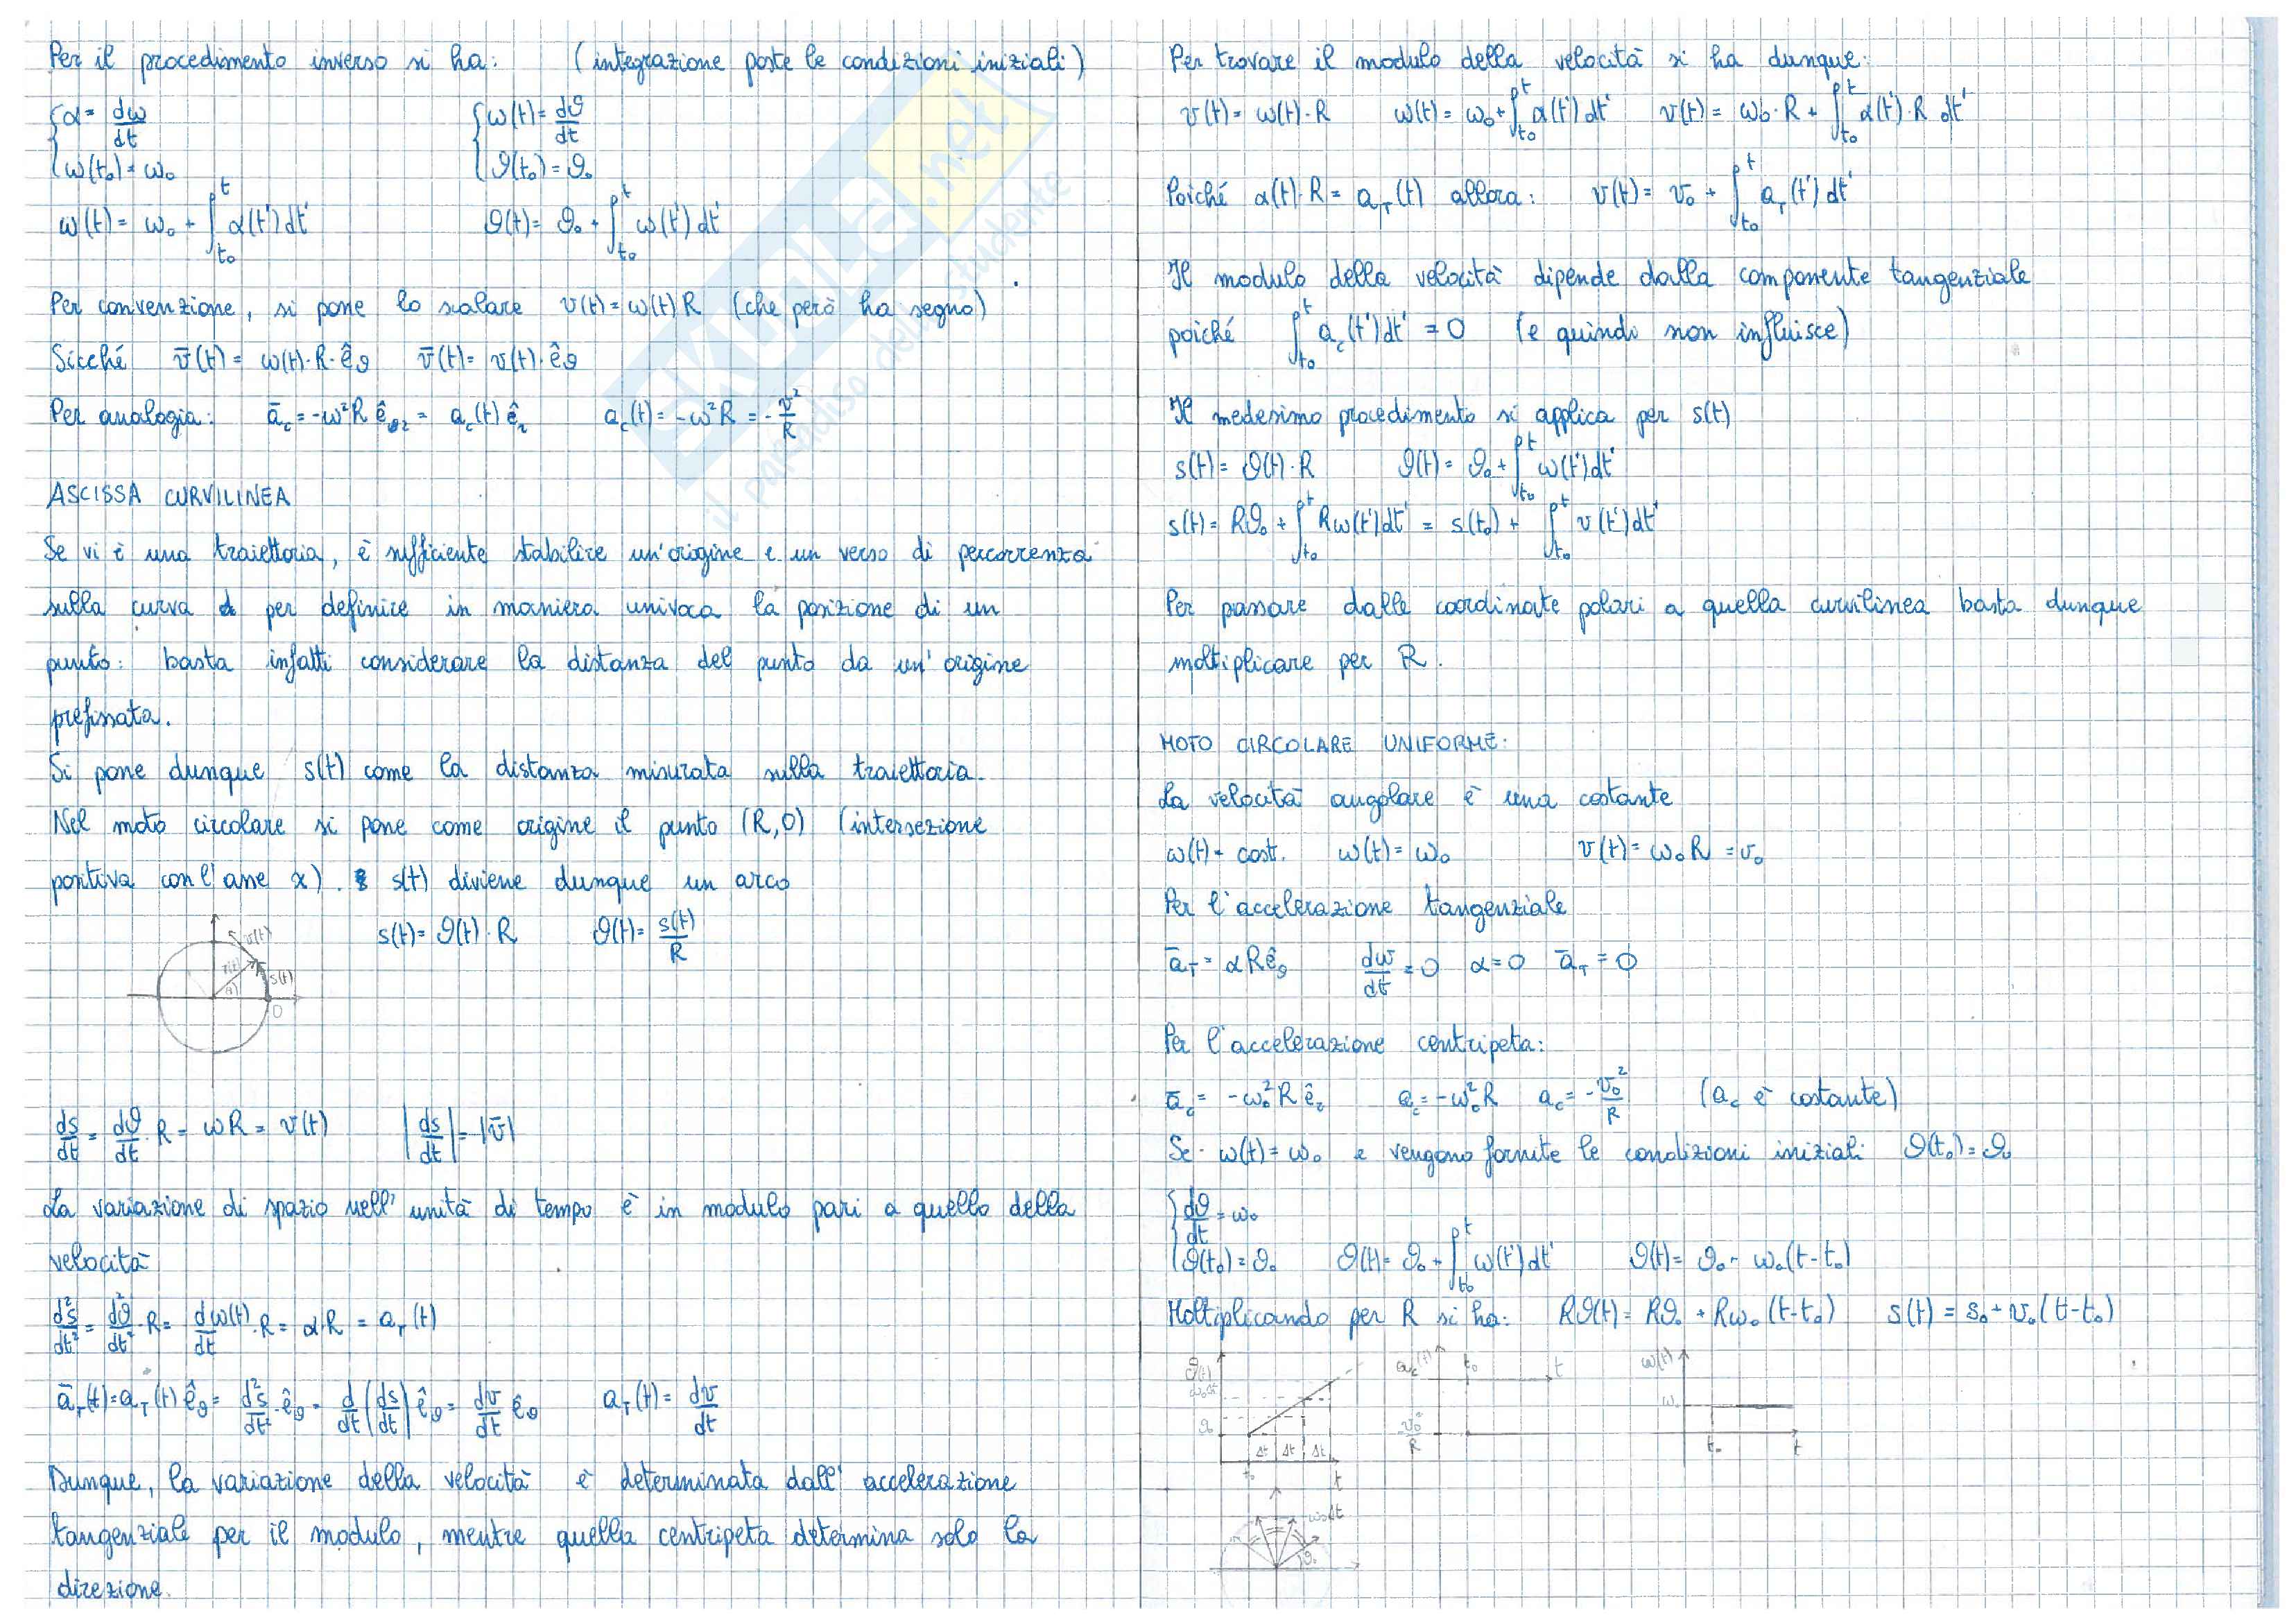 Per il procedimento inverso si ha: (integrazione poste le condizioni iniziali)
{α = dω/dt {ω(t) = dϑ/dt
ω(t₀) = ω₀ ϑ(t₀) = ϑ₀
ω(t) = ω₀ + ∫_{t₀}^{t} α(t') dt' ϑ(t) = ϑ₀ + ∫_{t₀}^{t} ω(t') dt'
Per convenzione, si pone lo scalare v(t) = ω(t) R (che però ha segno)
Sicché v̄(t) = ω(t)·R·ê_ϑ v̄(t) = v(t)·ê_ϑ
Per analogia: ā_c = -ω²R ê_r = a_c(t) ê_r a_c(t) = -ω²R = -v²/R
ASCISSA CURVILINEA
Se vi è una traiettoria, è sufficiente stabilire un'origine e un verso di percorrenza
sulla curva per definire in maniera univoca la posizione di un
punto: basta infatti considerare la distanza del punto da un'origine
prefissata.
Si pone dunque s(t) come la distanza misurata sulla traiettoria.
Nel moto circolare si pone come origine il punto (R,0) (intersezione
positiva con l'asse x). s(t) diviene dunque un arco
s(t) = ϑ(t)·R ϑ(t) = s(t)/R
v(t)
r(t)
s(t)
O
ds/dt = dϑ/dt·R = ωR = v(t) |ds/dt| = |v̄|
La variazione di spazio nell'unità di tempo è in modulo pari a quello della
velocità
d²s/dt² = d²ϑ/dt²·R = dω(t)/dt·R = αR = a_T(t)
ā_T(t) = a_T(t) ê_ϑ = d²s/dt²·ê_ϑ = d/dt(ds/dt) ê_ϑ = dv/dt ê_ϑ a_T(t) = dv/dt
Dunque, la variazione della velocità è determinata dall'accelerazione
tangenziale per il modulo, mentre quella centripeta determina solo la
direzione.
Per trovare il modulo della velocità si ha dunque:
v(t) = ω(t)·R ω(t) = ω₀ + ∫_{t₀}^{t} α(t') dt' v(t) = ω₀·R + ∫_{t₀}^{t} α(t')·R dt'
Poiché α(t)·R = a_T(t) allora: v(t) = v₀ + ∫_{t₀}^{t} a_T(t') dt'
Il modulo della velocità dipende dalla componente tangenziale
poiché ∫_{t₀}^{t} a_c(t') dt' = 0 (e quindi non influisce)
Il medesimo procedimento si applica per s(t)
s(t) = ϑ(t)·R ϑ(t) = ϑ₀ + ∫_{t₀}^{t} ω(t') dt'
s(t) = Rϑ₀ + ∫_{t₀}^{t} Rω(t') dt' = s(t₀) + ∫_{t₀}^{t} v(t') dt'
Per passare dalle coordinate polari a quella curvilinea basta dunque
moltiplicare per R.
MOTO CIRCOLARE UNIFORME:
La velocità angolare è una costante
ω(t) = cost. ω(t) = ω₀ v(t) = ω₀R = v₀
Per l'accelerazione tangenziale
ā_T = αRê_ϑ dω/dt = 0 α = 0 ā_T = 0
Per l'accelerazione centripeta:
ā_c = -ω₀²R ê_r a_c = -ω₀²R a_c = -v₀²/R (a_c è costante)
Se ω(t) = ω₀ e vengono fornite le condizioni iniziali ϑ(t₀) = ϑ₀
{dϑ/dt = ω₀
ϑ(t₀) = ϑ₀ ϑ(t) = ϑ₀ + ∫_{t₀}^{t} ω(t') dt' ϑ(t) = ϑ₀ + ω₀(t-t₀)
Moltiplicando per R si ha: Rϑ(t) = Rϑ₀ + Rω₀(t-t₀) s(t) = s₀ + v₀(t-t₀)
ϑ(t) a_c(t) t₀ t ω(t)
ω₀Δt ω₀
ϑ₀ v₀²/R
Δt Δt Δt t₀ t
t₀ t
ω₀Δt
ϑ₀
SKUOLA.net
il paradiso dello studente